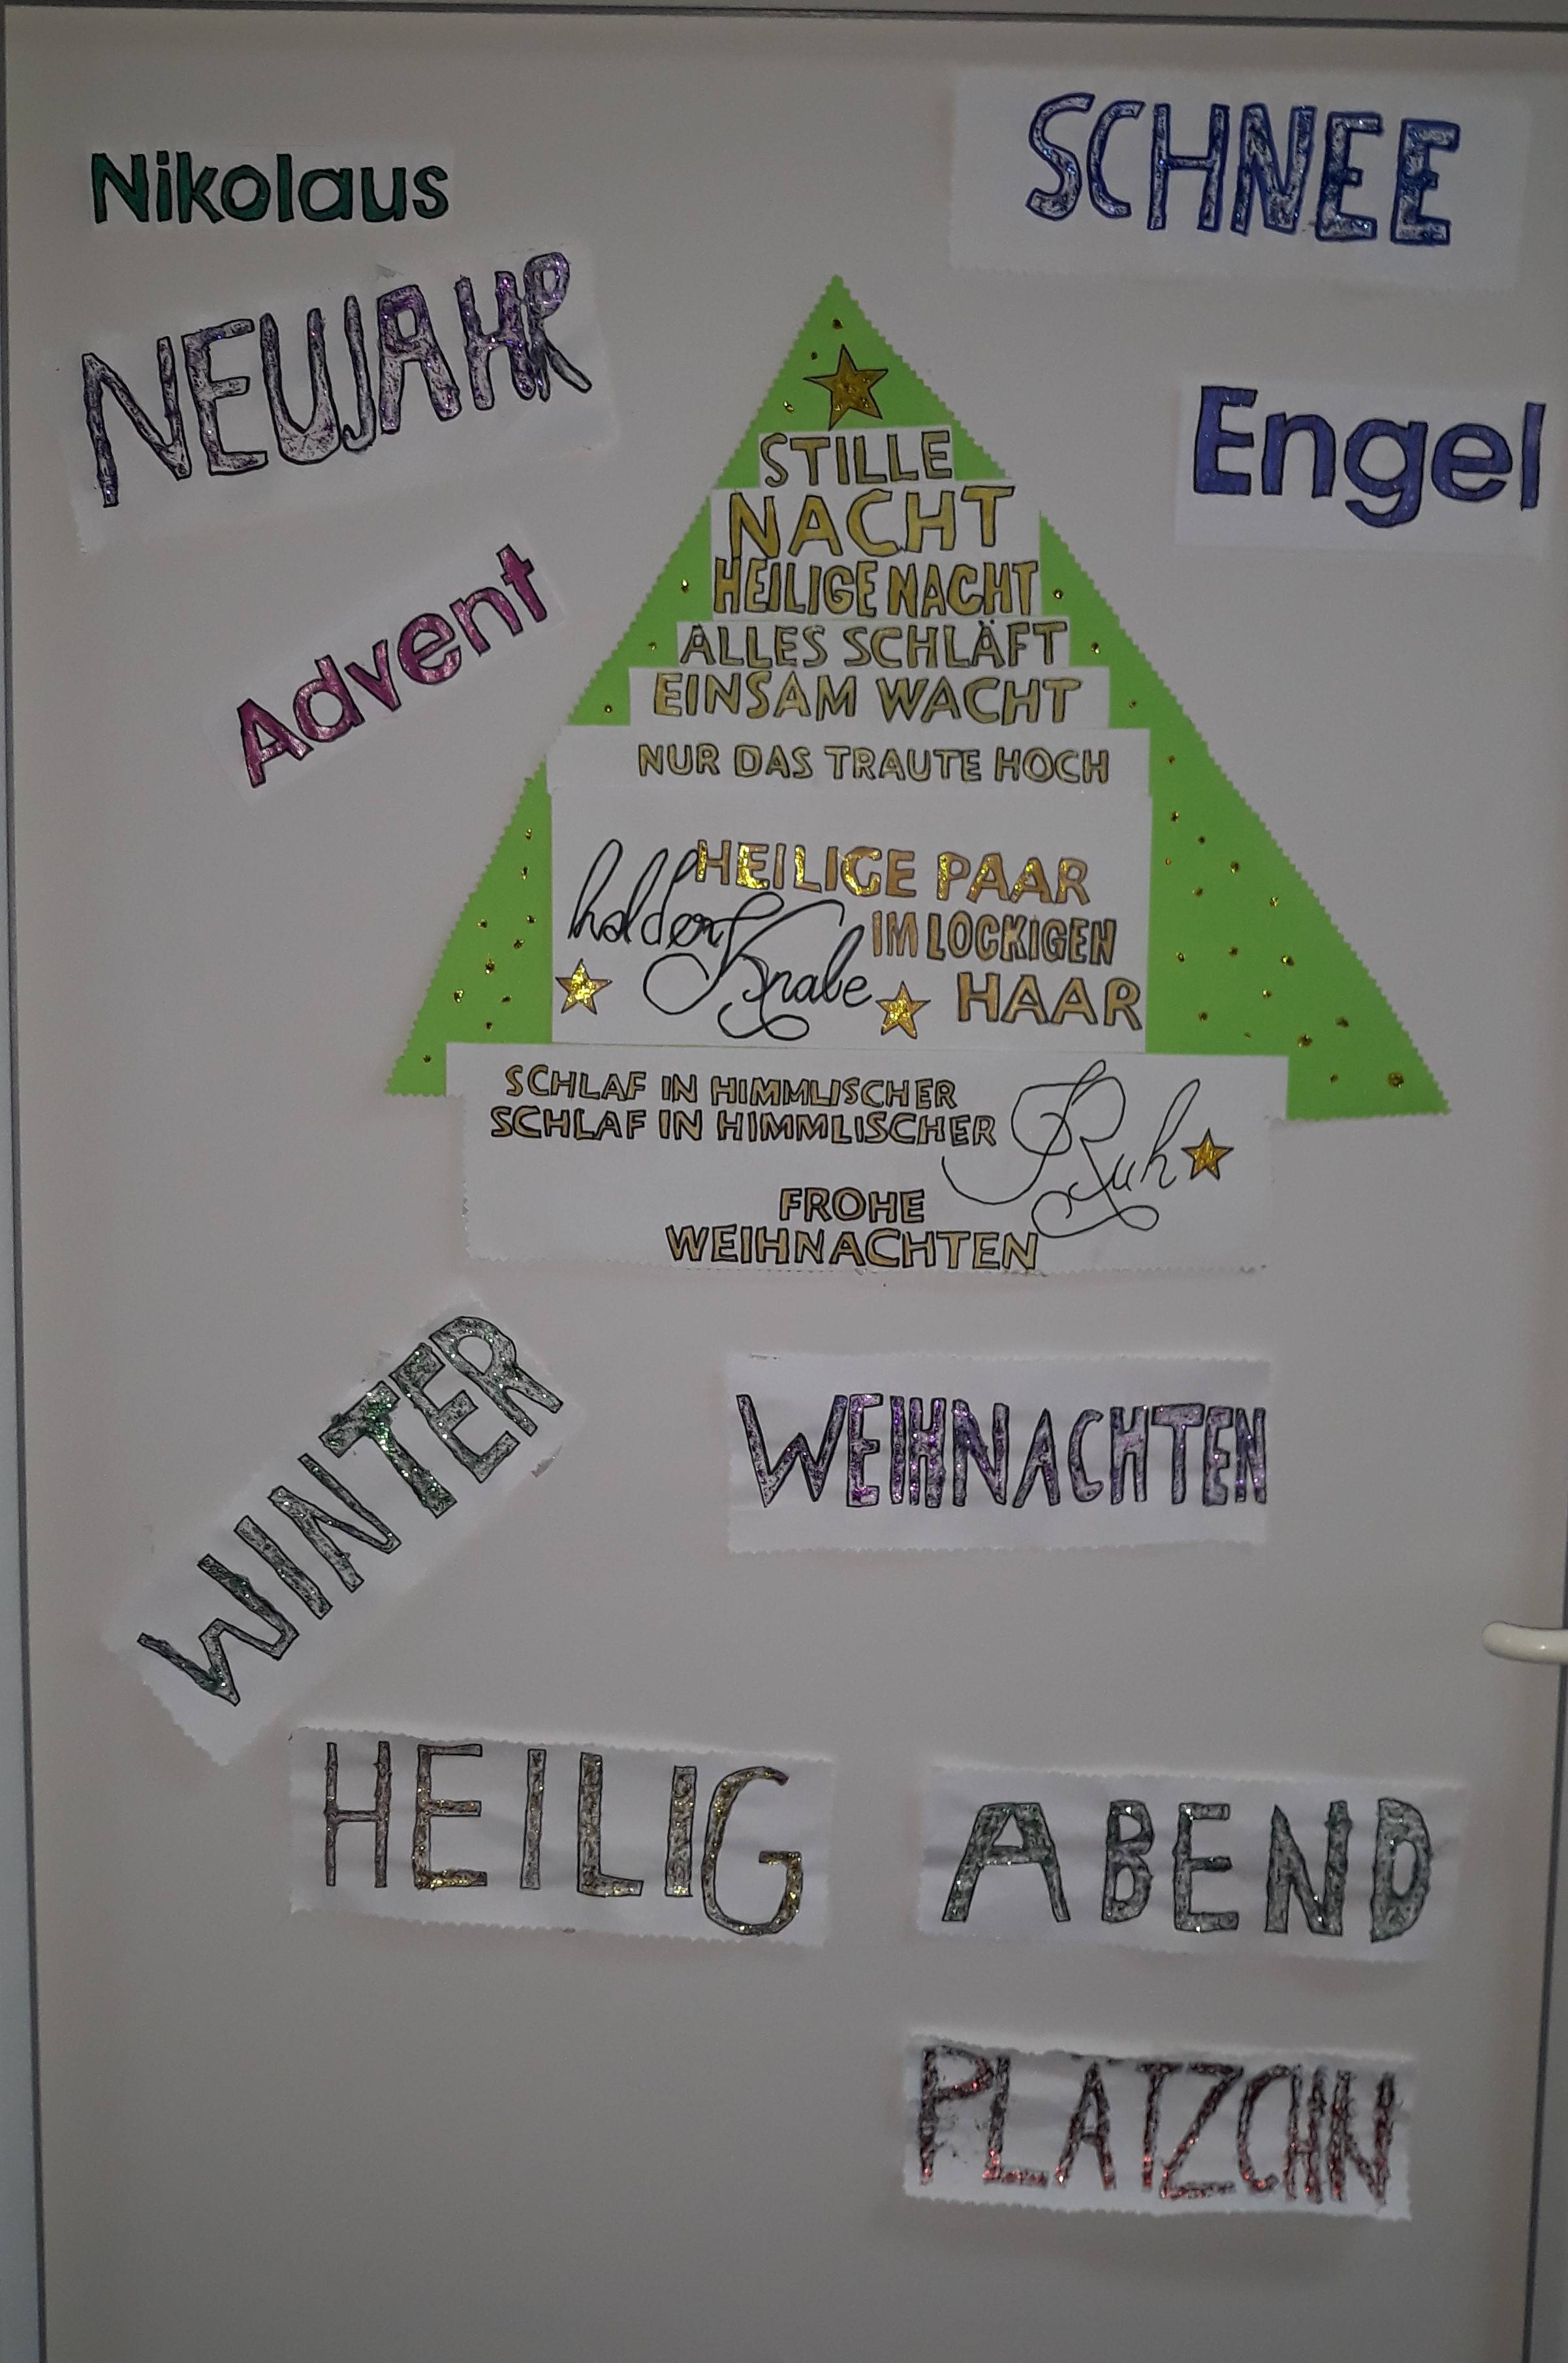 Nikolaus
SCHNEE
NEUJAHR
Engel
Advent
STILLE
NACHT
HEILIGE NACHT
ALLES SCHLÄFT
EINSAM WACHT
NUR DAS TRAUTE HOCH
HEILIGE PAAR
holder Knabe
IM LOCKIGEN
HAAR
SCHLAF IN HIMMLISCHER
SCHLAF IN HIMMLISCHER
Ruh
FROHE
WEIHNACHTEN
WINTER
WEIHNACHTEN
HEILIG ABEND
PLÄTZCHN